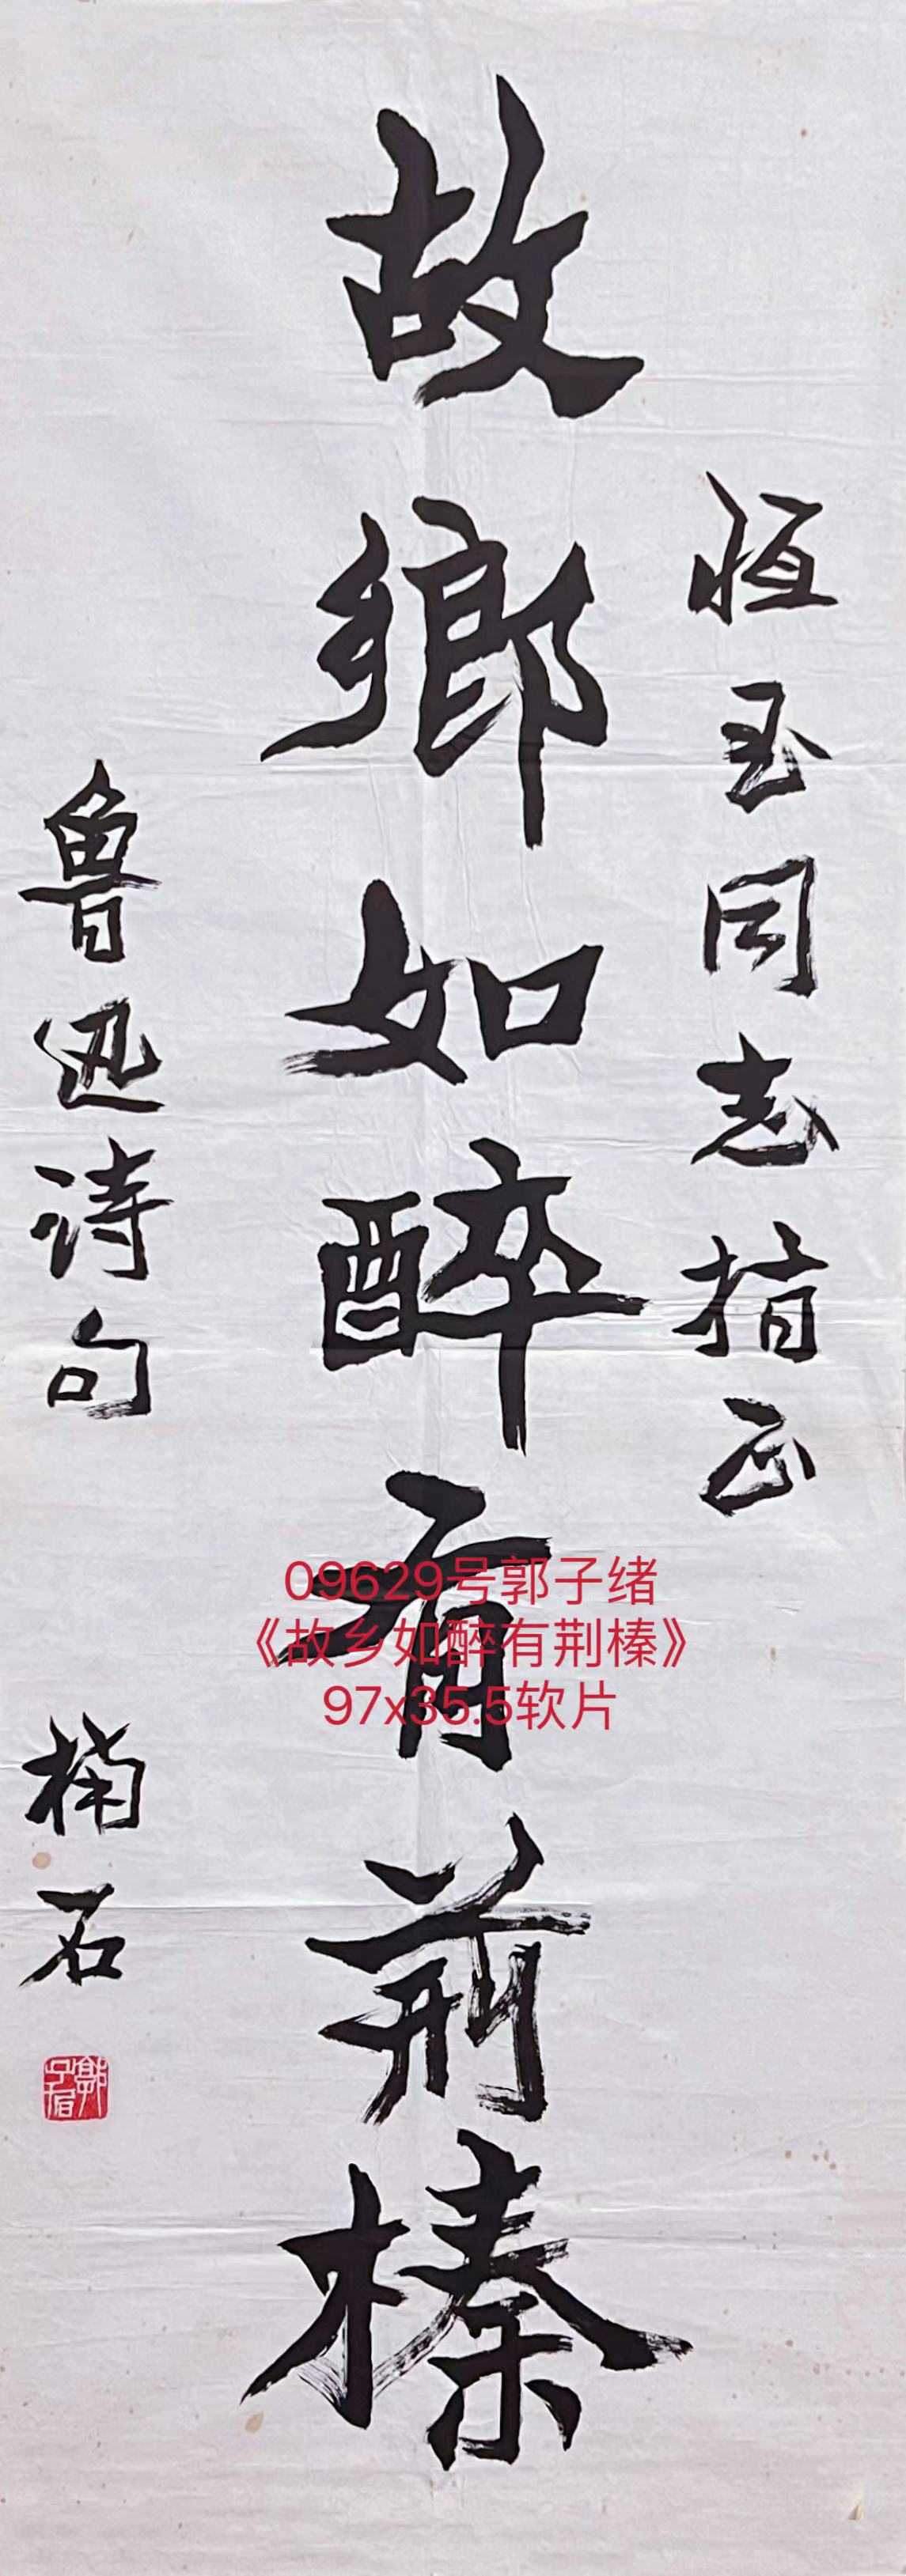 恒玉同志指正
故鄉如醉有荊榛
魯迅诗句
楠石
09629号郭子绪
《故乡如醉有荆榛》
97x35.5软片